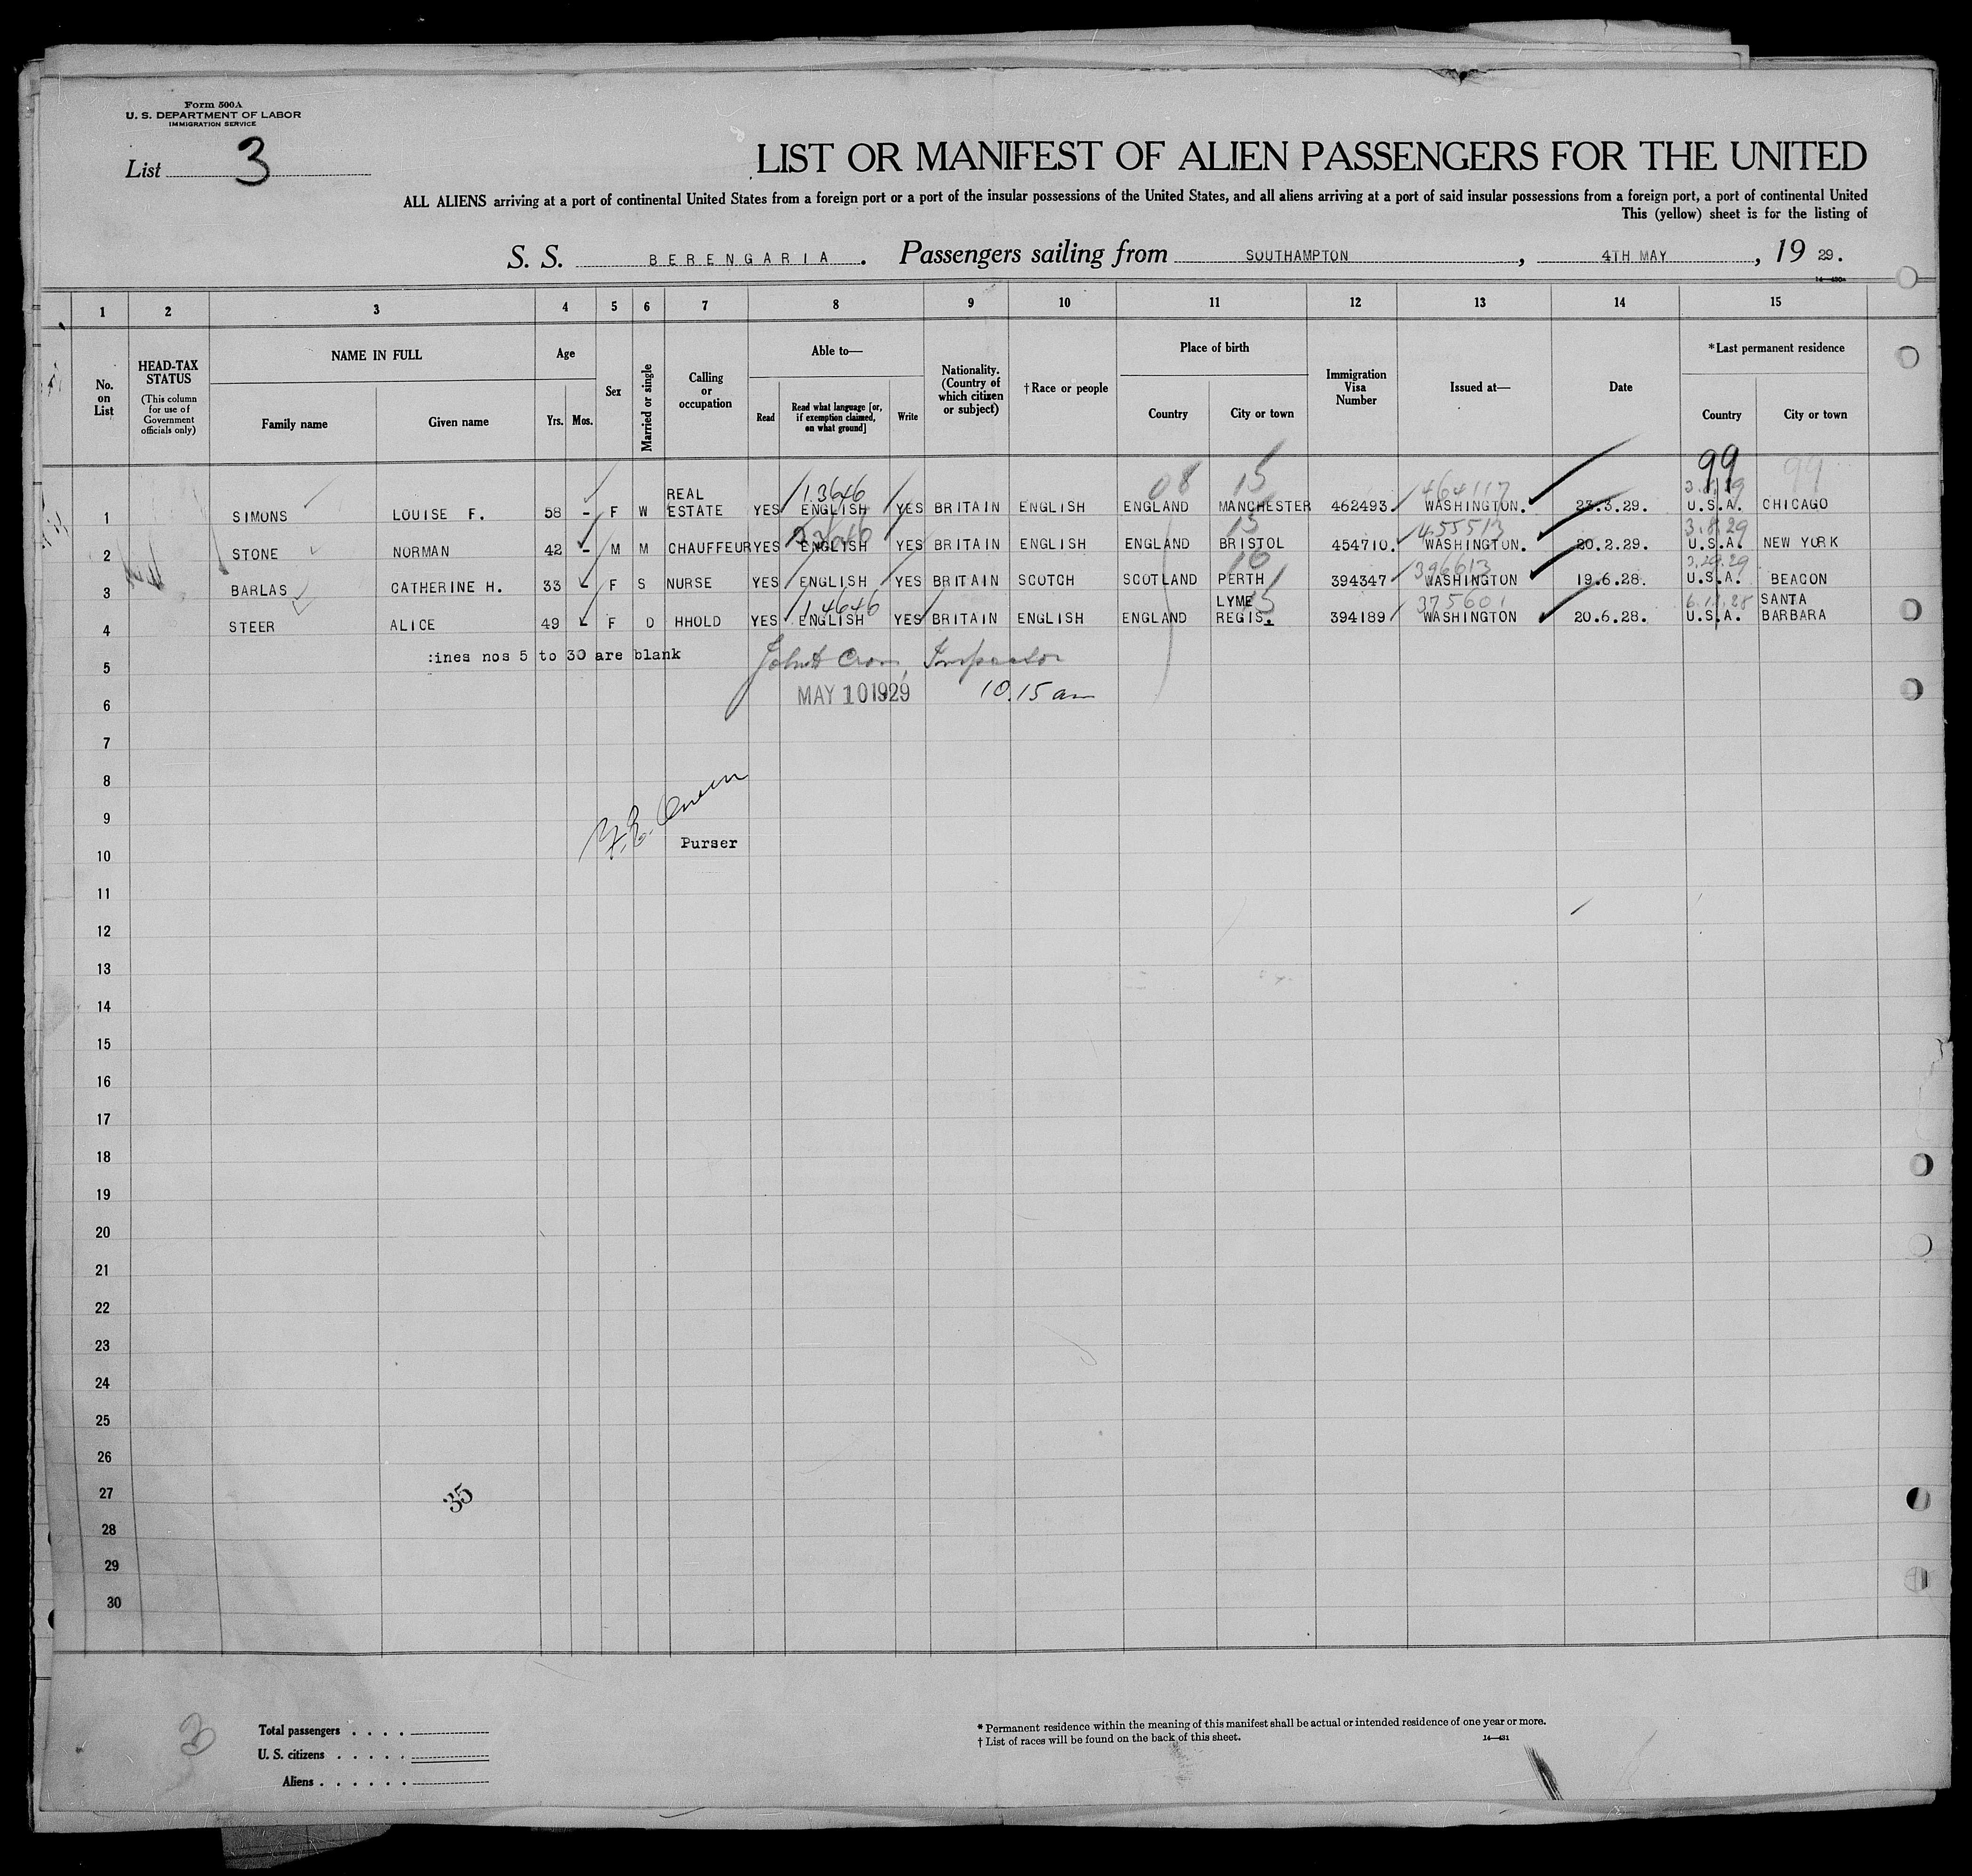 Form 500A
U. S. DEPARTMENT OF LABOR
IMMIGRATION SERVICE
List 3
LIST OR MANIFEST OF ALIEN PASSENGERS FOR THE UNITED
ALL ALIENS arriving at a port of continental United States from a foreign port or a port of the insular possessions of the United States, and all aliens arriving at a port of said insular possessions from a foreign port, a port of continental United
This (yellow) sheet is for the listing of
S. S. BERENGARIA. Passengers sailing from SOUTHAMPTON, 4TH MAY, 19 29.
14—430a
1 2 3 4 5 6 7 8 9 10 11 12 13 14 15
No. on List
HEAD-TAX STATUS (This column for use of Government officials only)
NAME IN FULL
Family name Given name
Age
Yrs. Mos.
Sex
Married or single
Calling or occupation
Able to—
Read Read what language [or, if exemption claimed, on what ground] Write
Nationality. (Country of which citizen or subject)
†Race or people
Place of birth
Country City or town
Immigration Visa Number
Issued at—
Date
*Last permanent residence
Country City or town
99 99
08 15
13646 464117
1 SIMONS LOUISE F. 58 - F W REAL ESTATE YES ENGLISH YES BRITAIN ENGLISH ENGLAND MANCHESTER 462493. WASHINGTON. 23.3.29. U.S.A. CHICAGO
15 455513 3.8.29
2 STONE NORMAN 42 - M M CHAUFFEUR YES ENGLISH YES BRITAIN ENGLISH ENGLAND BRISTOL 454710. WASHINGTON. 20.2.29. U.S.A. NEW YORK
16 396613
3 BARLAS CATHERINE H. 33 - F S NURSE YES ENGLISH YES BRITAIN SCOTCH SCOTLAND PERTH 394347 WASHINGTON 19.6.28. U.S.A. BEACON
14646 15 375601
4 STEER ALICE 49 - F D HHOLD YES ENGLISH YES BRITAIN ENGLISH ENGLAND LYME REGIS. 394189 WASHINGTON 20.6.28. U.S.A. SANTA BARBARA
5 :ines nos 5 to 30 are blank Inspector
6 MAY 10 1929 10.15 am
7
8
9
10 Purser
11
12
13
14
15
16
17
18
19
20
21
22
23
24
25
26
27 35
28
29
30
3
Total passengers . . . .
U. S. citizens . . . . .
Aliens . . . . . .
* Permanent residence within the meaning of this manifest shall be actual or intended residence of one year or more.
† List of races will be found on the back of this sheet. 14—431